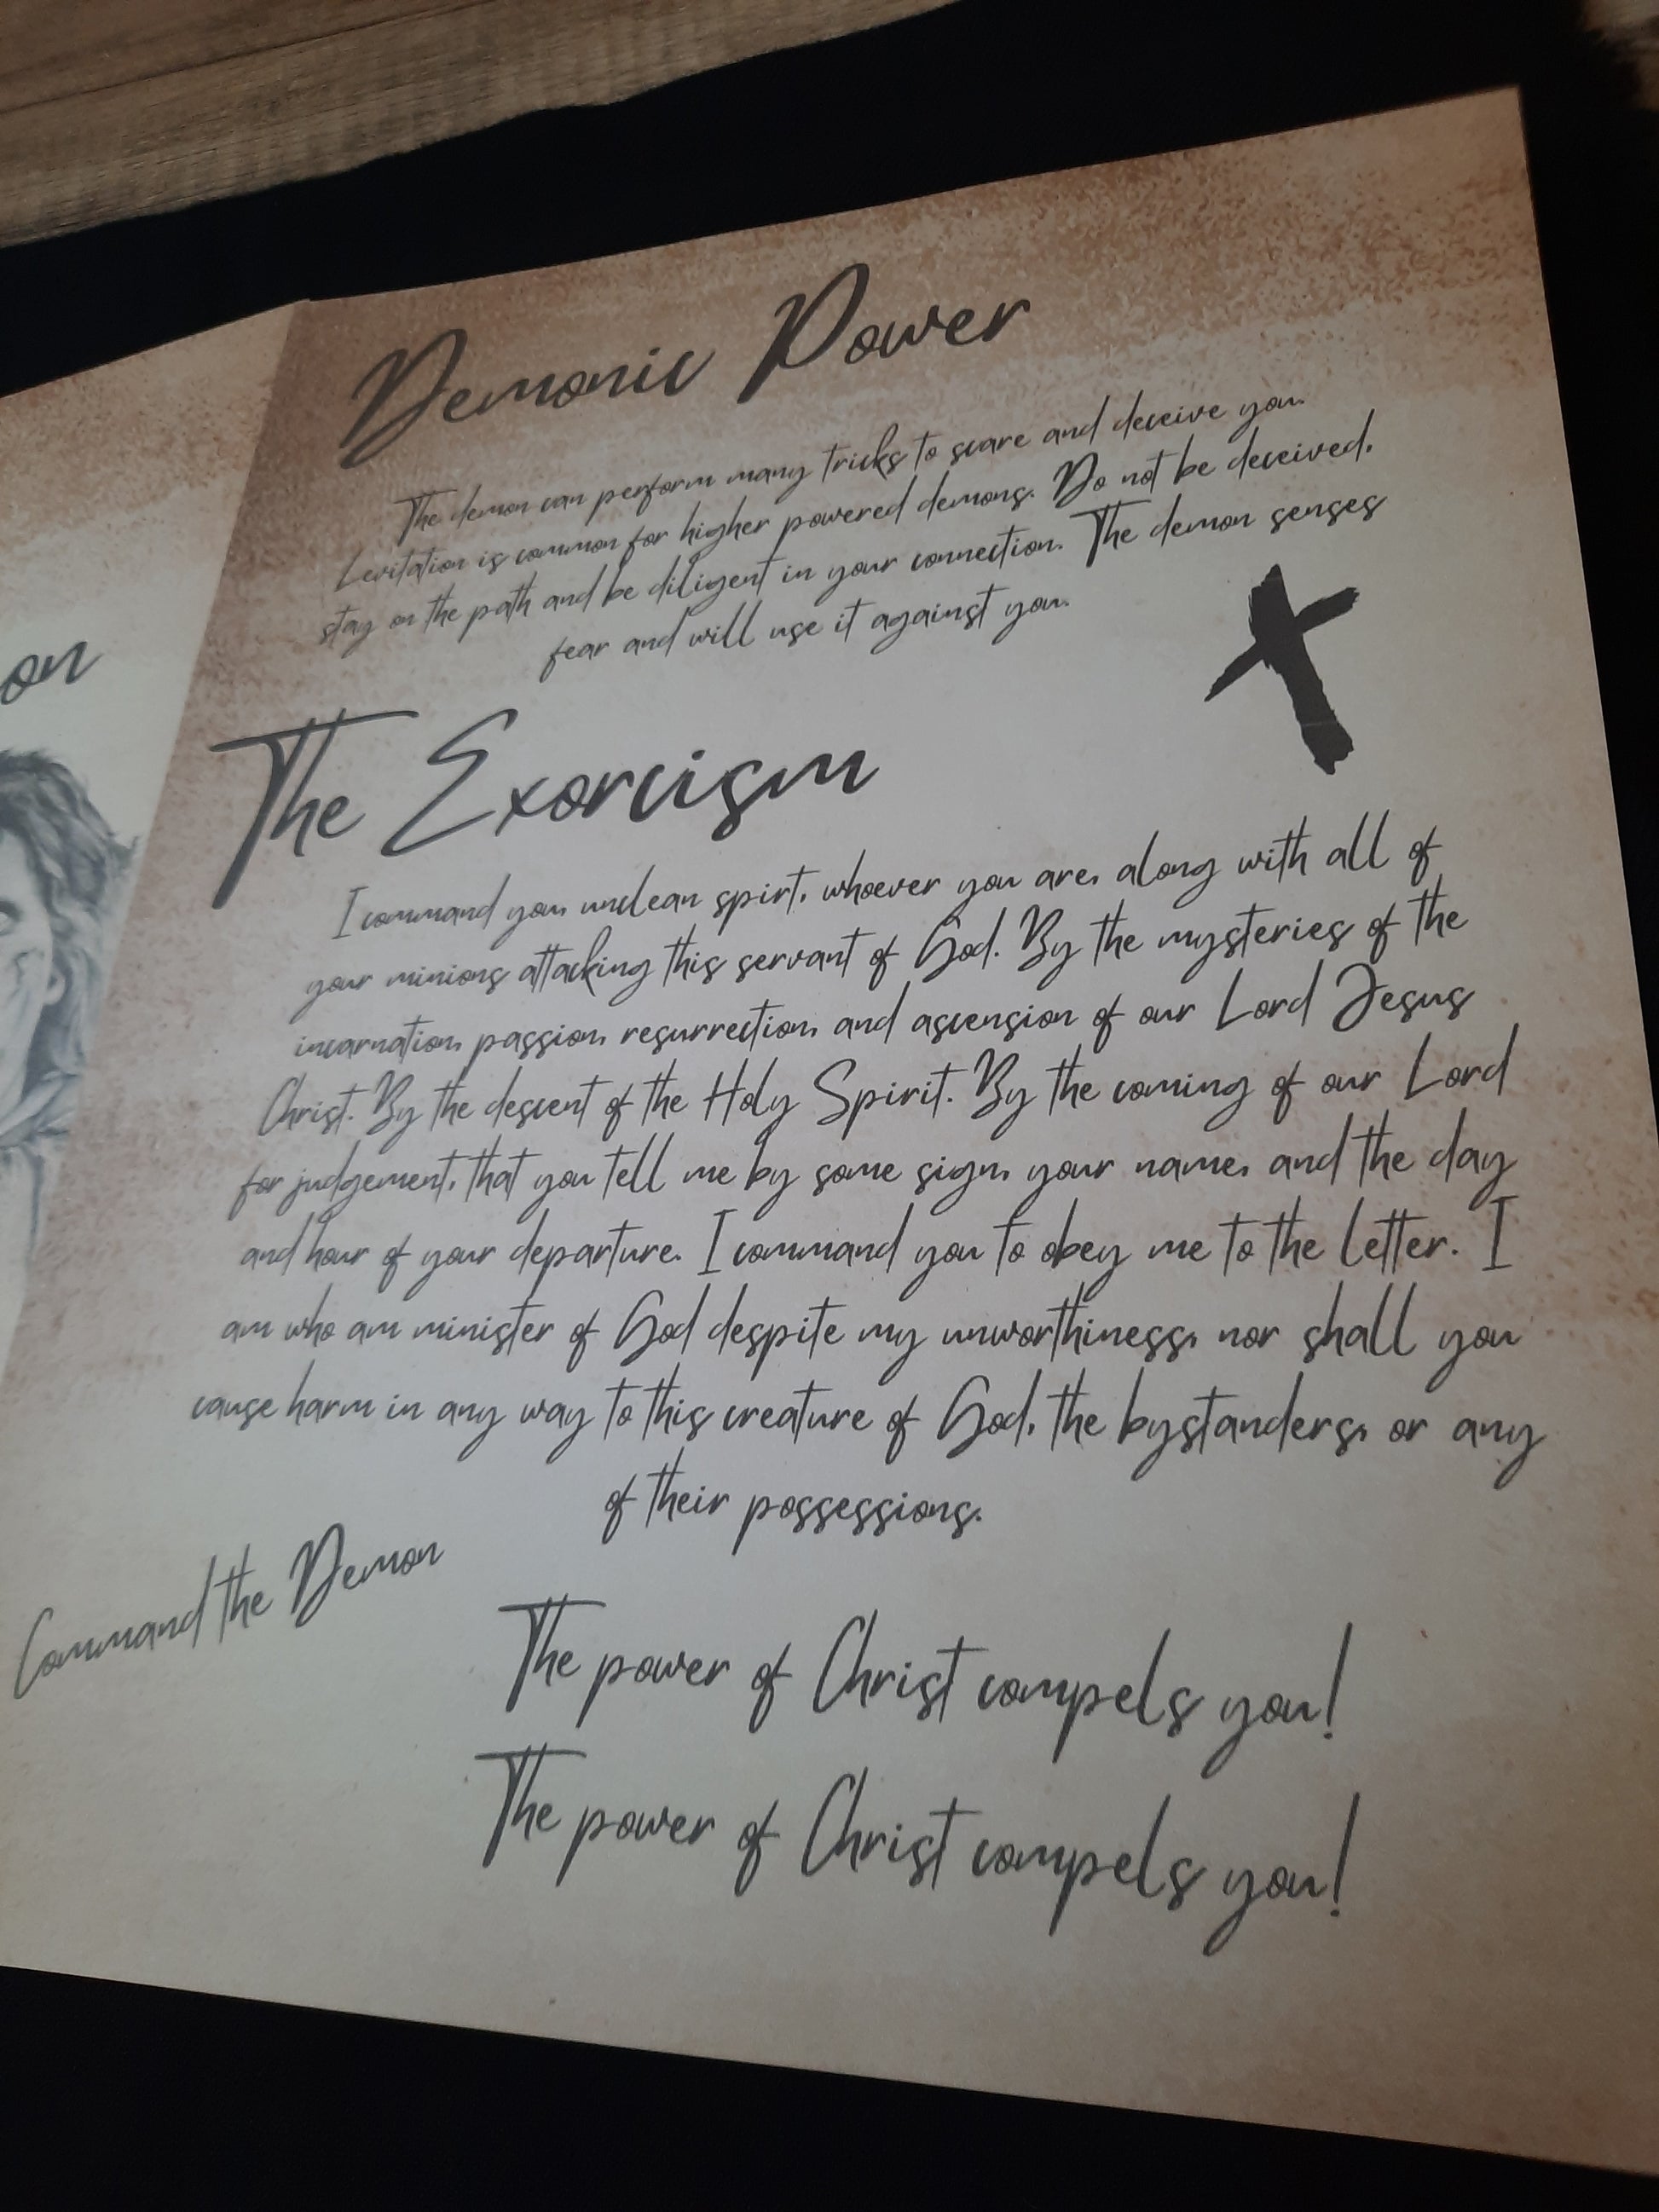 on
Demonic Power
The demon can perform many tricks to scare and deceive you.
Levitation is common for higher powered demons. Do not be deceived,
stay on the path and be diligent in your connection. The demon senses
fear and will use it against you.
The Exorcism
I command you, unclean spirt, whoever you are, along with all of
your minions attacking this servant of God. By the mysteries of the
incarnation, passion, resurrection, and ascension of our Lord Jesus
Christ. By the descent of the Holy Spirit. By the coming of our Lord
for judgement, that you tell me by some sign, your name, and the day
and hour of your departure. I command you to obey me to the letter. I
am who am minister of God despite my unworthiness, nor shall you
cause harm in any way to this creature of God, the bystanders, or any
of their possessions.
Command the Demon
The power of Christ compels you!
The power of Christ compels you!